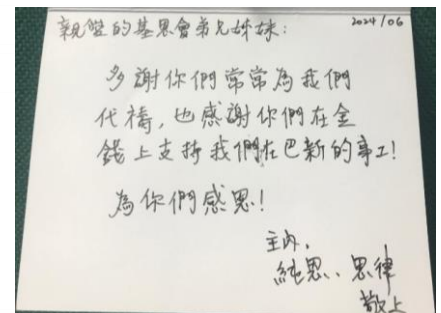 親愛的基恩會弟兄姊妹:
2024/06
多謝你們常常為我們
代禱,也感謝你們在金
錢上支持我們在巴新的事工!
為你們感恩!
主內,
純恩、思律
敬上